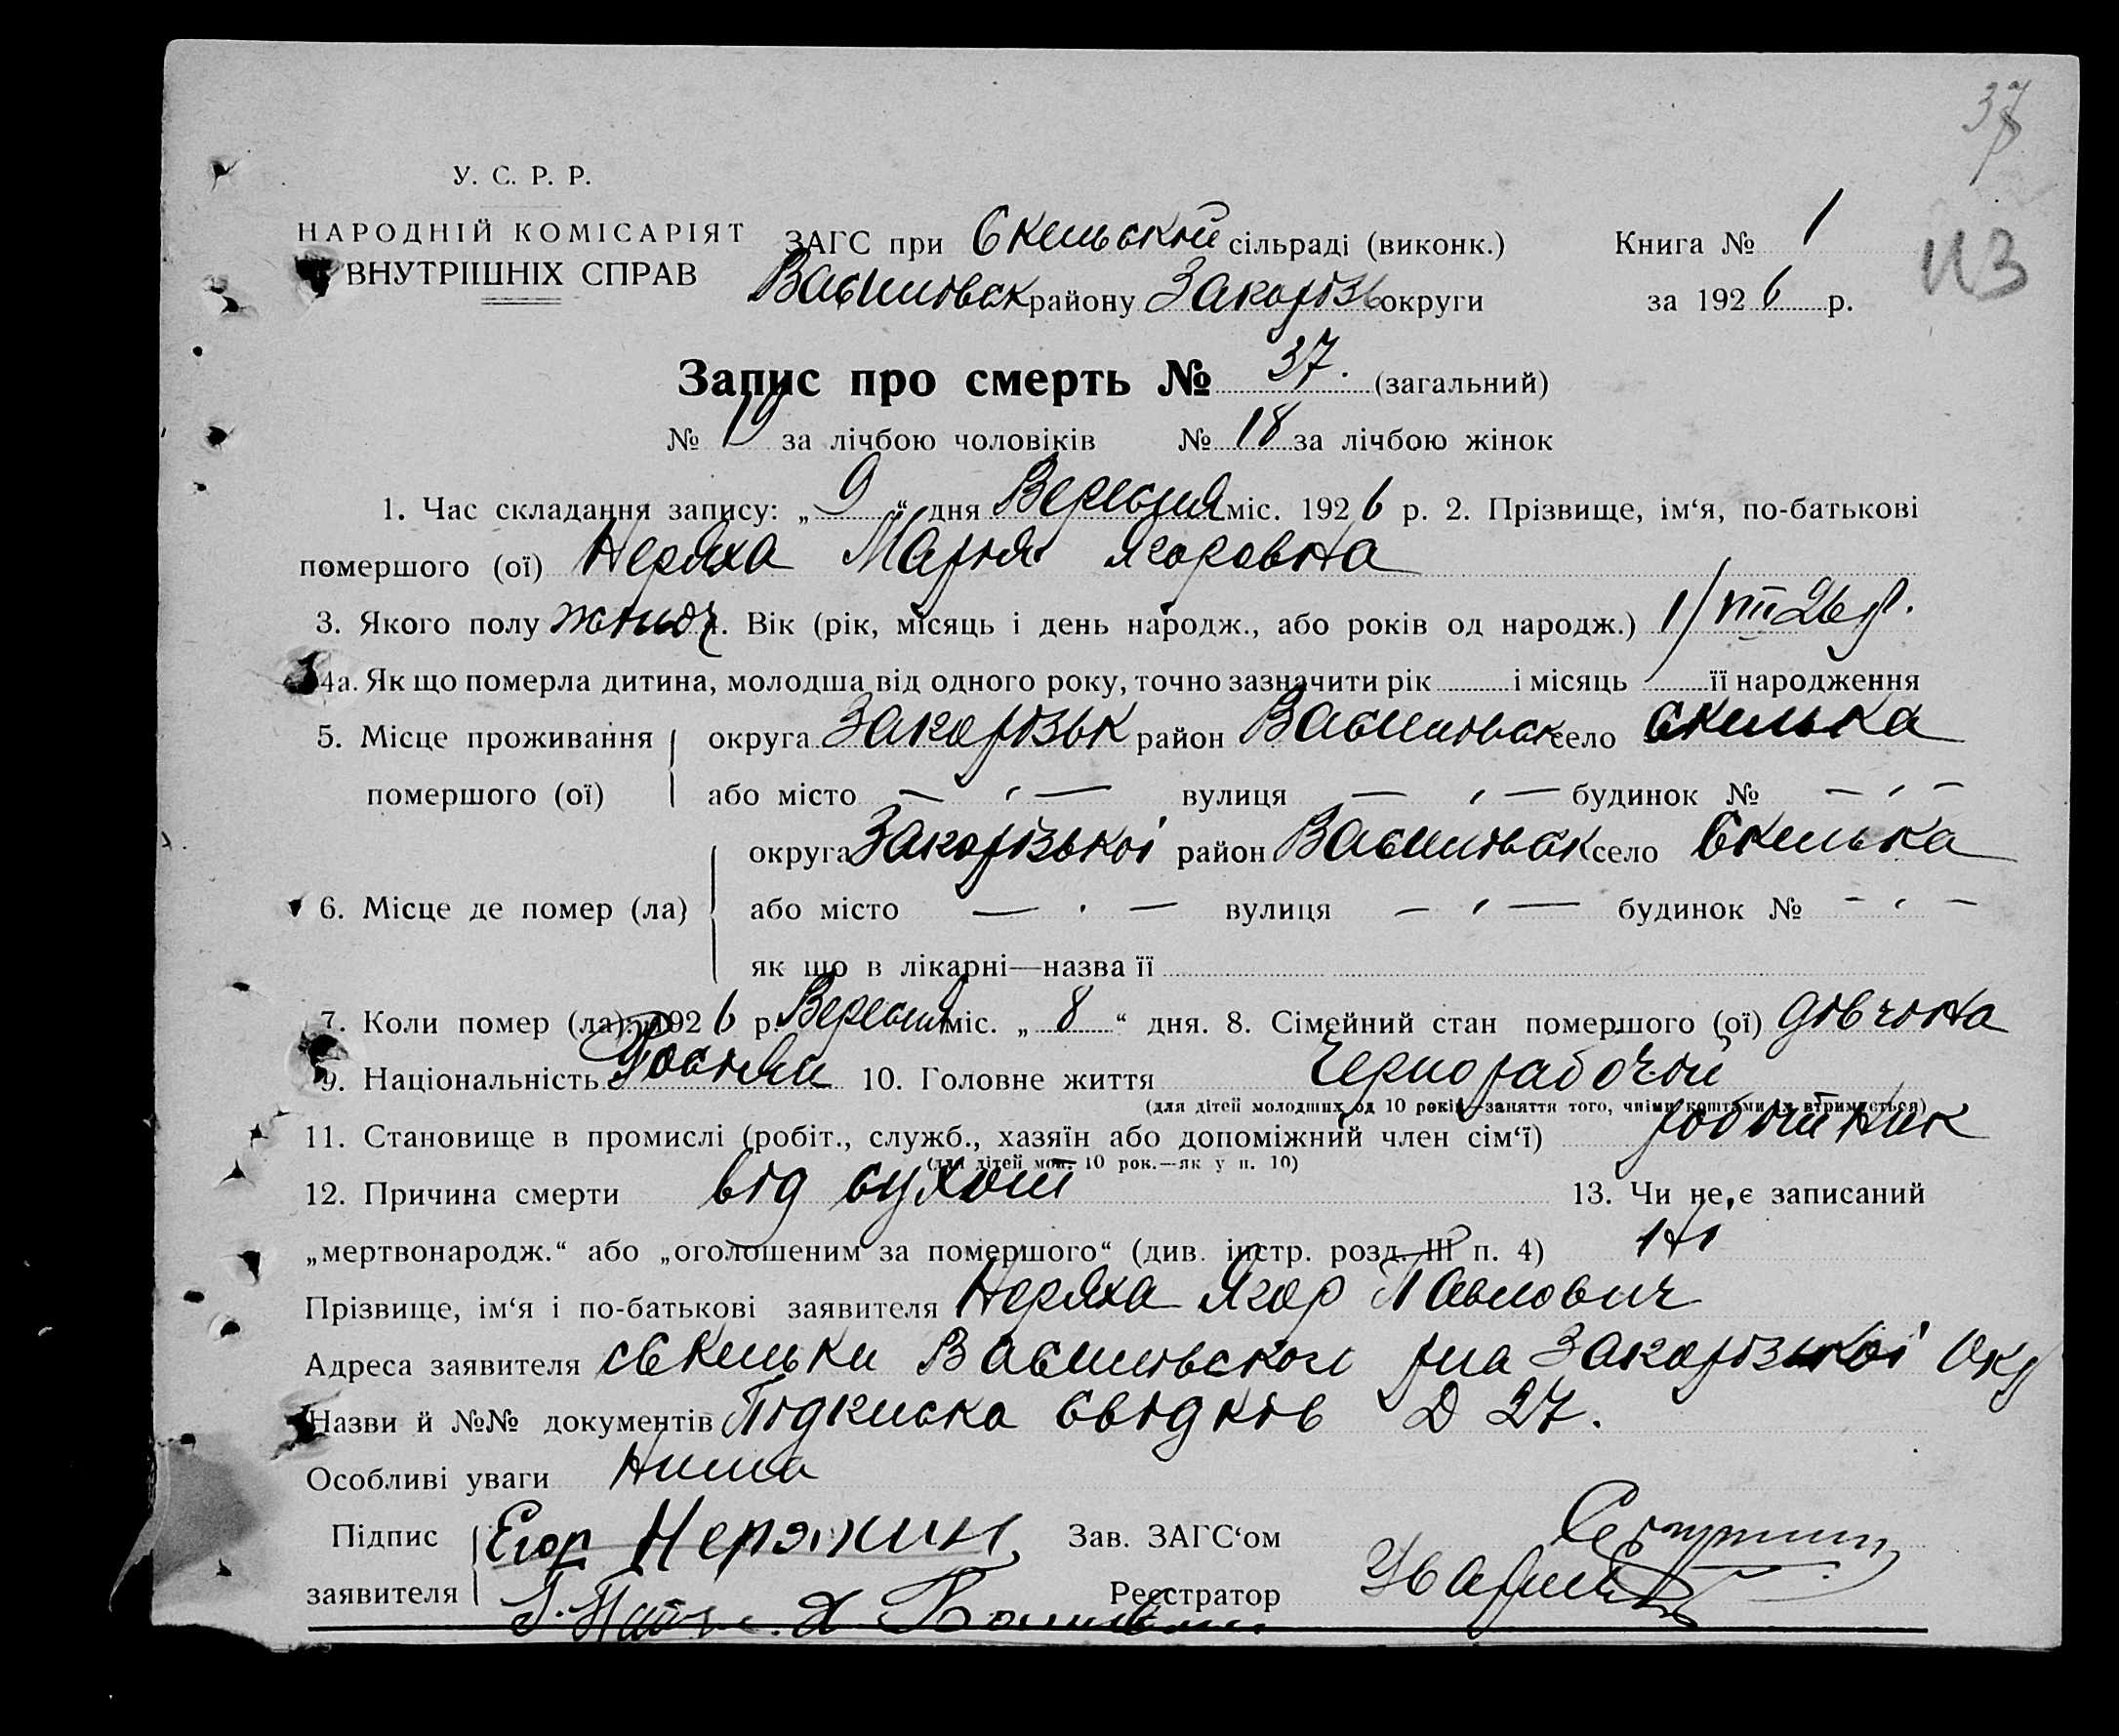 37
У. С. Р. Р.
НАРОДНІЙ КОМІСАРІЯТ
ВНУТРІШНІХ СПРАВ
ЗАГС при Скельской сільраді (виконк.) Книга № 1
Василовск району Запоріз округи за 1926 р.
Запис про смерть № 37. (загальний)
№ 19 за лічбою чоловіків № 18 за лічбою жінок
1. Час складання запису: „9“ дня Вересня міс. 1926 р. 2. Прізвище, ім‘я, по-батькові
помершого (ої) Неряха Марія Ягоровна
3. Якого полу жиноч. Вік (рік, місяць і день народж., або років од народж.) 1/VIII 26 р.
4а. Як що померла дитина, молодша від одного року, точно зазначити рік і місяць її народження
5. Місце проживання округа Запорізьк район Василівск село Скелька
помершого (ої) або місто — „ — вулиця — „ — будинок № — „ —
округа Запорізькоі район Василівск село Скелька
6. Місце де помер (ла) або місто — „ — вулиця — „ — будинок № — „ —
як що в лікарні—назва її
7. Коли помер (ла): 1926 р. Вересня міс. „8“ дня. 8. Сімейний стан помершого (ої) дівчина
9. Національність Росіян 10. Головне життя Чернорабочій
(для дітей молодших од 10 років—заняття того, чиїми коштами їх втримується)
11. Становище в промислі (робіт., служб., хазяїн або допоміжний член сім‘ї) робітник
(для дітей мол. 10 рок.—як у п. 10)
12. Причина смерти від сухот 13. Чи не є записаний
„мертвонародж.“ або „оголошеним за помершого“ (див. інстр. розд. III п. 4) Ні
Прізвище, ім‘я і по-батькові заявителя Неряха Ягор Павлович
Адреса заявителя с Скельки Василівского рна Запорізькоі Окр
Назви й №№ документів Підписка свідків Д 27.
Особливі уваги Нима
Підпис Егор Неряхин Зав. ЗАГС‘ом
заявителя Реєстратор